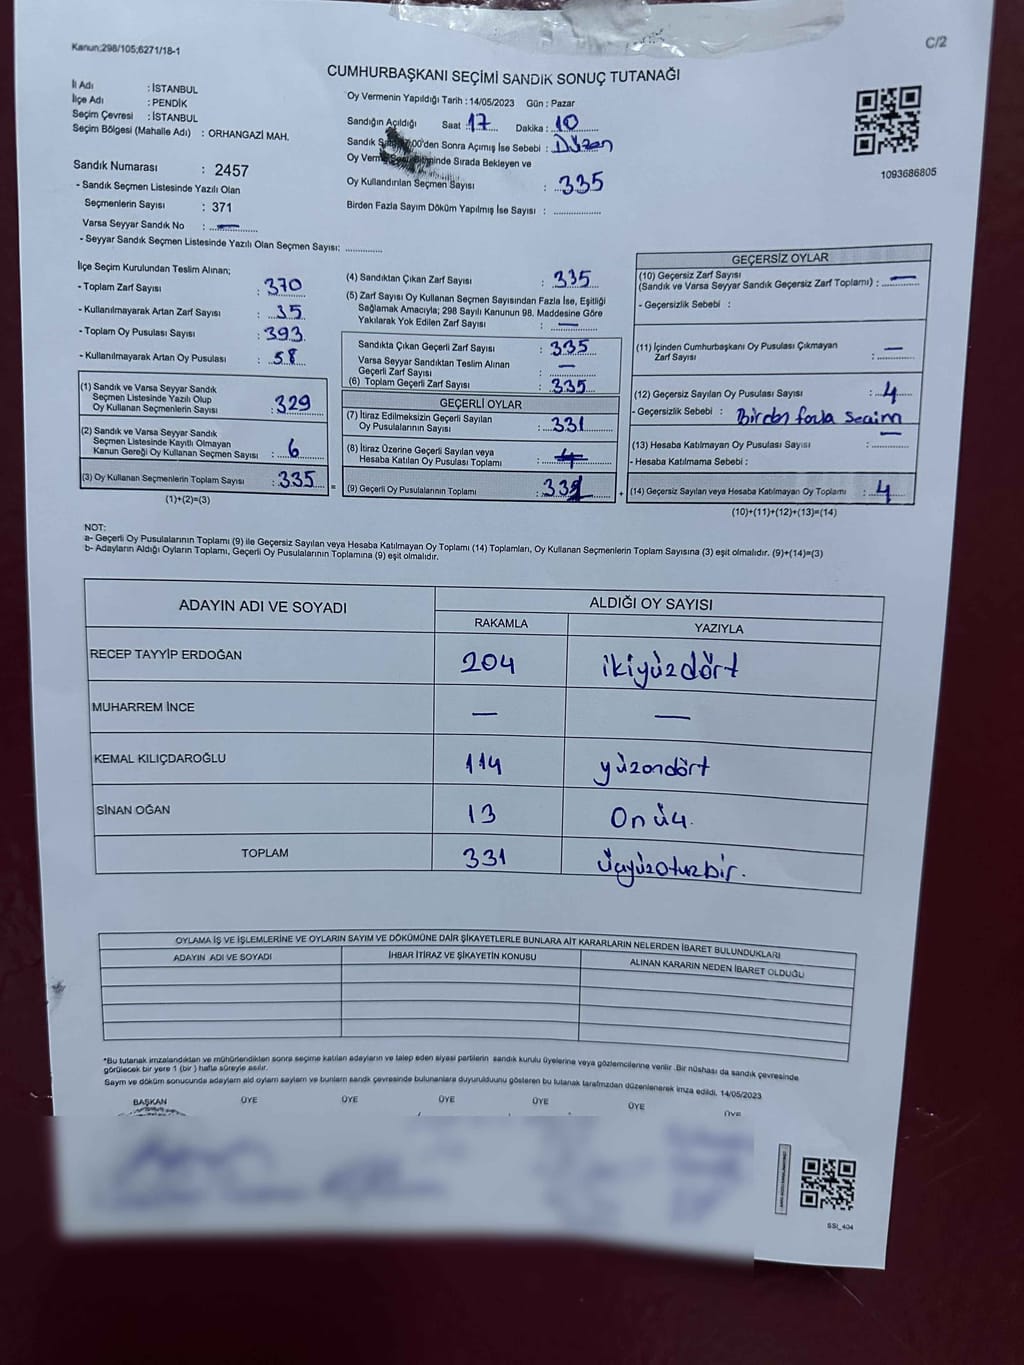 Kanun;298/105;6271/18-1
C/2
CUMHURBAŞKANI SEÇİMİ SANDIK SONUÇ TUTANAĞI
İl Adı : İSTANBUL
İlçe Adı : PENDİK
Seçim Çevresi : İSTANBUL
Seçim Bölgesi (Mahalle Adı) : ORHANGAZİ MAH.
Sandık Numarası : 2457
- Sandık Seçmen Listesinde Yazılı Olan
Seçmenlerin Sayısı : 371
Varsa Seyyar Sandık No : —
- Seyyar Sandık Seçmen Listesinde Yazılı Olan Seçmen Sayısı: ............
Oy Vermenin Yapıldığı Tarih : 14/05/2023 Gün : Pazar
Sandığın Açıldığı Saat 17 Dakika : 10
Sandık 00'den Sonra Açımış İse Sebebi : Düzen
Oy Verme Sırada Bekleyen ve
Oy Kullandırılan Seçmen Sayısı : 335
Birden Fazla Sayım Döküm Yapılmış İse Sayısı : ............
1093686805
İlçe Seçim Kurulundan Teslim Alınan;
- Toplam Zarf Sayısı : 370
- Kullanılmayarak Artan Zarf Sayısı : 35
- Toplam Oy Pusulası Sayısı : 393
- Kullanılmayarak Artan Oy Pusulası : 58
(1) Sandık ve Varsa Seyyar Sandık
Seçmen Listesinde Yazılı Olup
Oy Kullanan Seçmenlerin Sayısı : 329
(2) Sandık ve Varsa Seyyar Sandık
Seçmen Listesinde Kayıtlı Olmayan
Kanun Gereği Oy Kullanan Seçmen Sayısı : 6
(3) Oy Kullanan Seçmenlerin Toplam Sayısı : 335
(1)+(2)=(3)
(4) Sandıktan Çıkan Zarf Sayısı : 335
(5) Zarf Sayısı Oy Kullanan Seçmen Sayısından Fazla İse, Eşitliği
Sağlamak Amacıyla; 298 Sayılı Kanunun 98. Maddesine Göre
Yakılarak Yok Edilen Zarf Sayısı : —
Sandıkta Çıkan Geçerli Zarf Sayısı : 335
Varsa Seyyar Sandıktan Teslim Alınan
Geçerli Zarf Sayısı : —
(6) Toplam Geçerli Zarf Sayısı : 335
GEÇERLİ OYLAR
(7) İtiraz Edilmeksizin Geçerli Sayılan
Oy Pusulalarının Sayısı : 331
(8) İtiraz Üzerine Geçerli Sayılan veya
Hesaba Katılan Oy Pusulası Toplamı :
=
(9) Geçerli Oy Pusulalarının Toplamı : 331
+
GEÇERSİZ OYLAR
(10) Geçersiz Zarf Sayısı
(Sandık ve Varsa Seyyar Sandık Geçersiz Zarf Toplamı) : —
- Geçersizlik Sebebi :
(11) İçinden Cumhurbaşkanı Oy Pusulası Çıkmayan
Zarf Sayısı : —
(12) Geçersiz Sayılan Oy Pusulası Sayısı : 4
- Geçersizlik Sebebi : Birden fazla seçim
(13) Hesaba Katılmayan Oy Pusulası Sayısı : —
- Hesaba Katılmama Sebebi :
(14) Geçersiz Sayılan veya Hesaba Katılmayan Oy Toplamı : 4
(10)+(11)+(12)+(13)=(14)
NOT:
a- Geçerli Oy Pusulalarının Toplamı (9) ile Geçersiz Sayılan veya Hesaba Katılmayan Oy Toplamı (14) Toplamları, Oy Kullanan Seçmenlerin Toplam Sayısına (3) eşit olmalıdır. (9)+(14)=(3)
b- Adayların Aldığı Oyların Toplamı, Geçerli Oy Pusulalarının Toplamına (9) eşit olmalıdır.
ADAYIN ADI VE SOYADI ALDIĞI OY SAYISI
RAKAMLA YAZIYLA
RECEP TAYYİP ERDOĞAN 204 ikiyüzdört
MUHARREM İNCE — —
KEMAL KILIÇDAROĞLU 114 yüzondört
SİNAN OĞAN 13 Onüç.
TOPLAM 331 üçyüzotuzbir.
OYLAMA İŞ VE İŞLEMLERİNE VE OYLARIN SAYIM VE DÖKÜMÜNE DAİR ŞİKAYETLERLE BUNLARA AİT KARARLARIN NELERDEN İBARET BULUNDUKLARI
ADAYIN ADI VE SOYADI İHBAR İTİRAZ VE ŞİKAYETİN KONUSU ALINAN KARARIN NEDEN İBARET OLDUĞU
*Bu tutanak imzalandıktan ve mühürlendikten sonra seçime katılan adayların ve talep eden siyasi partilerin sandık kurulu üyelerine veya gözlemcilerine verilir. Bir nüshası da sandık çevresinde
görülecek bir yere 1 (bir ) hafta süreyle asılır.
Sayım ve döküm sonucunda adayların ald oyların sayıları ve bunların sandık çevresinde bulunanlara duyurulduunu gösteren bu tutanak tarafımızdan düzenlenerek imza edildi. 14/05/2023
BAŞKAN ÜYE ÜYE ÜYE ÜYE ÜYE ÜYE
SSI_404